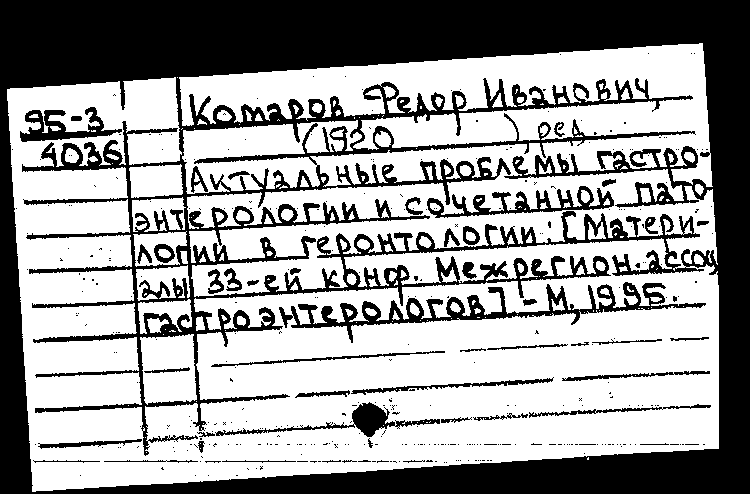 95-3 Комаров, Федор Иванович,
4036 (1920 ), ред.
Актуальные проблемы гастро-
энтерологии и сочетанной пато-
логии в геронтологии: [Матери-
алы 33-ей конф. Межрегион. ассоц
гастроэнтерологов] - М, 1995.